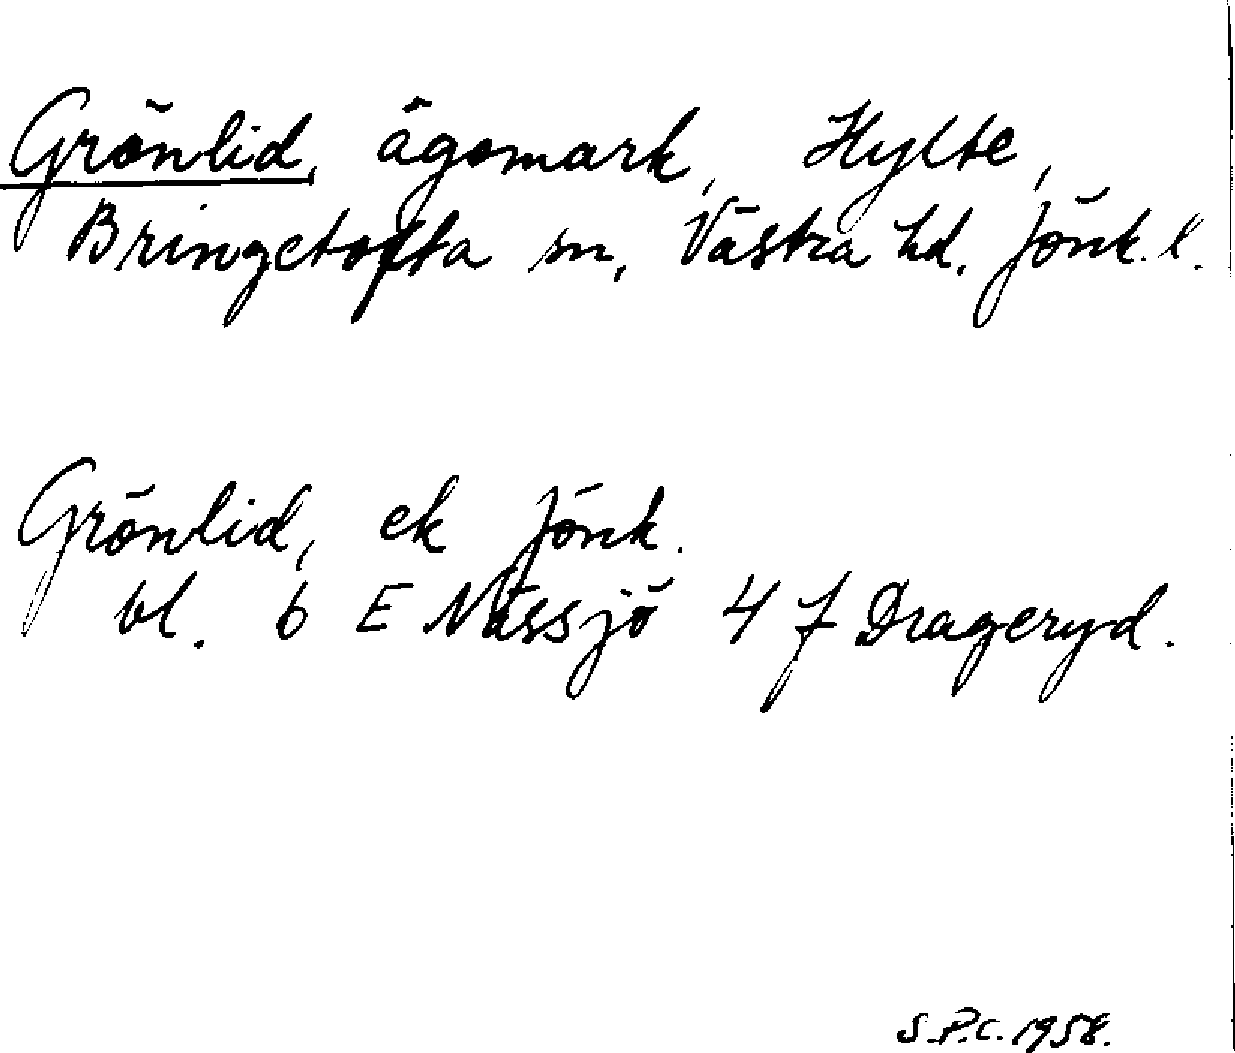 Grönlid, ägomark, Hylte,
Bringetofta sn, Västra hd. Jönk. l.
Grönlid, ek Jönk.
bl. 6 E Nässjö 4 f Drageryd.
S.P.C. 1958.